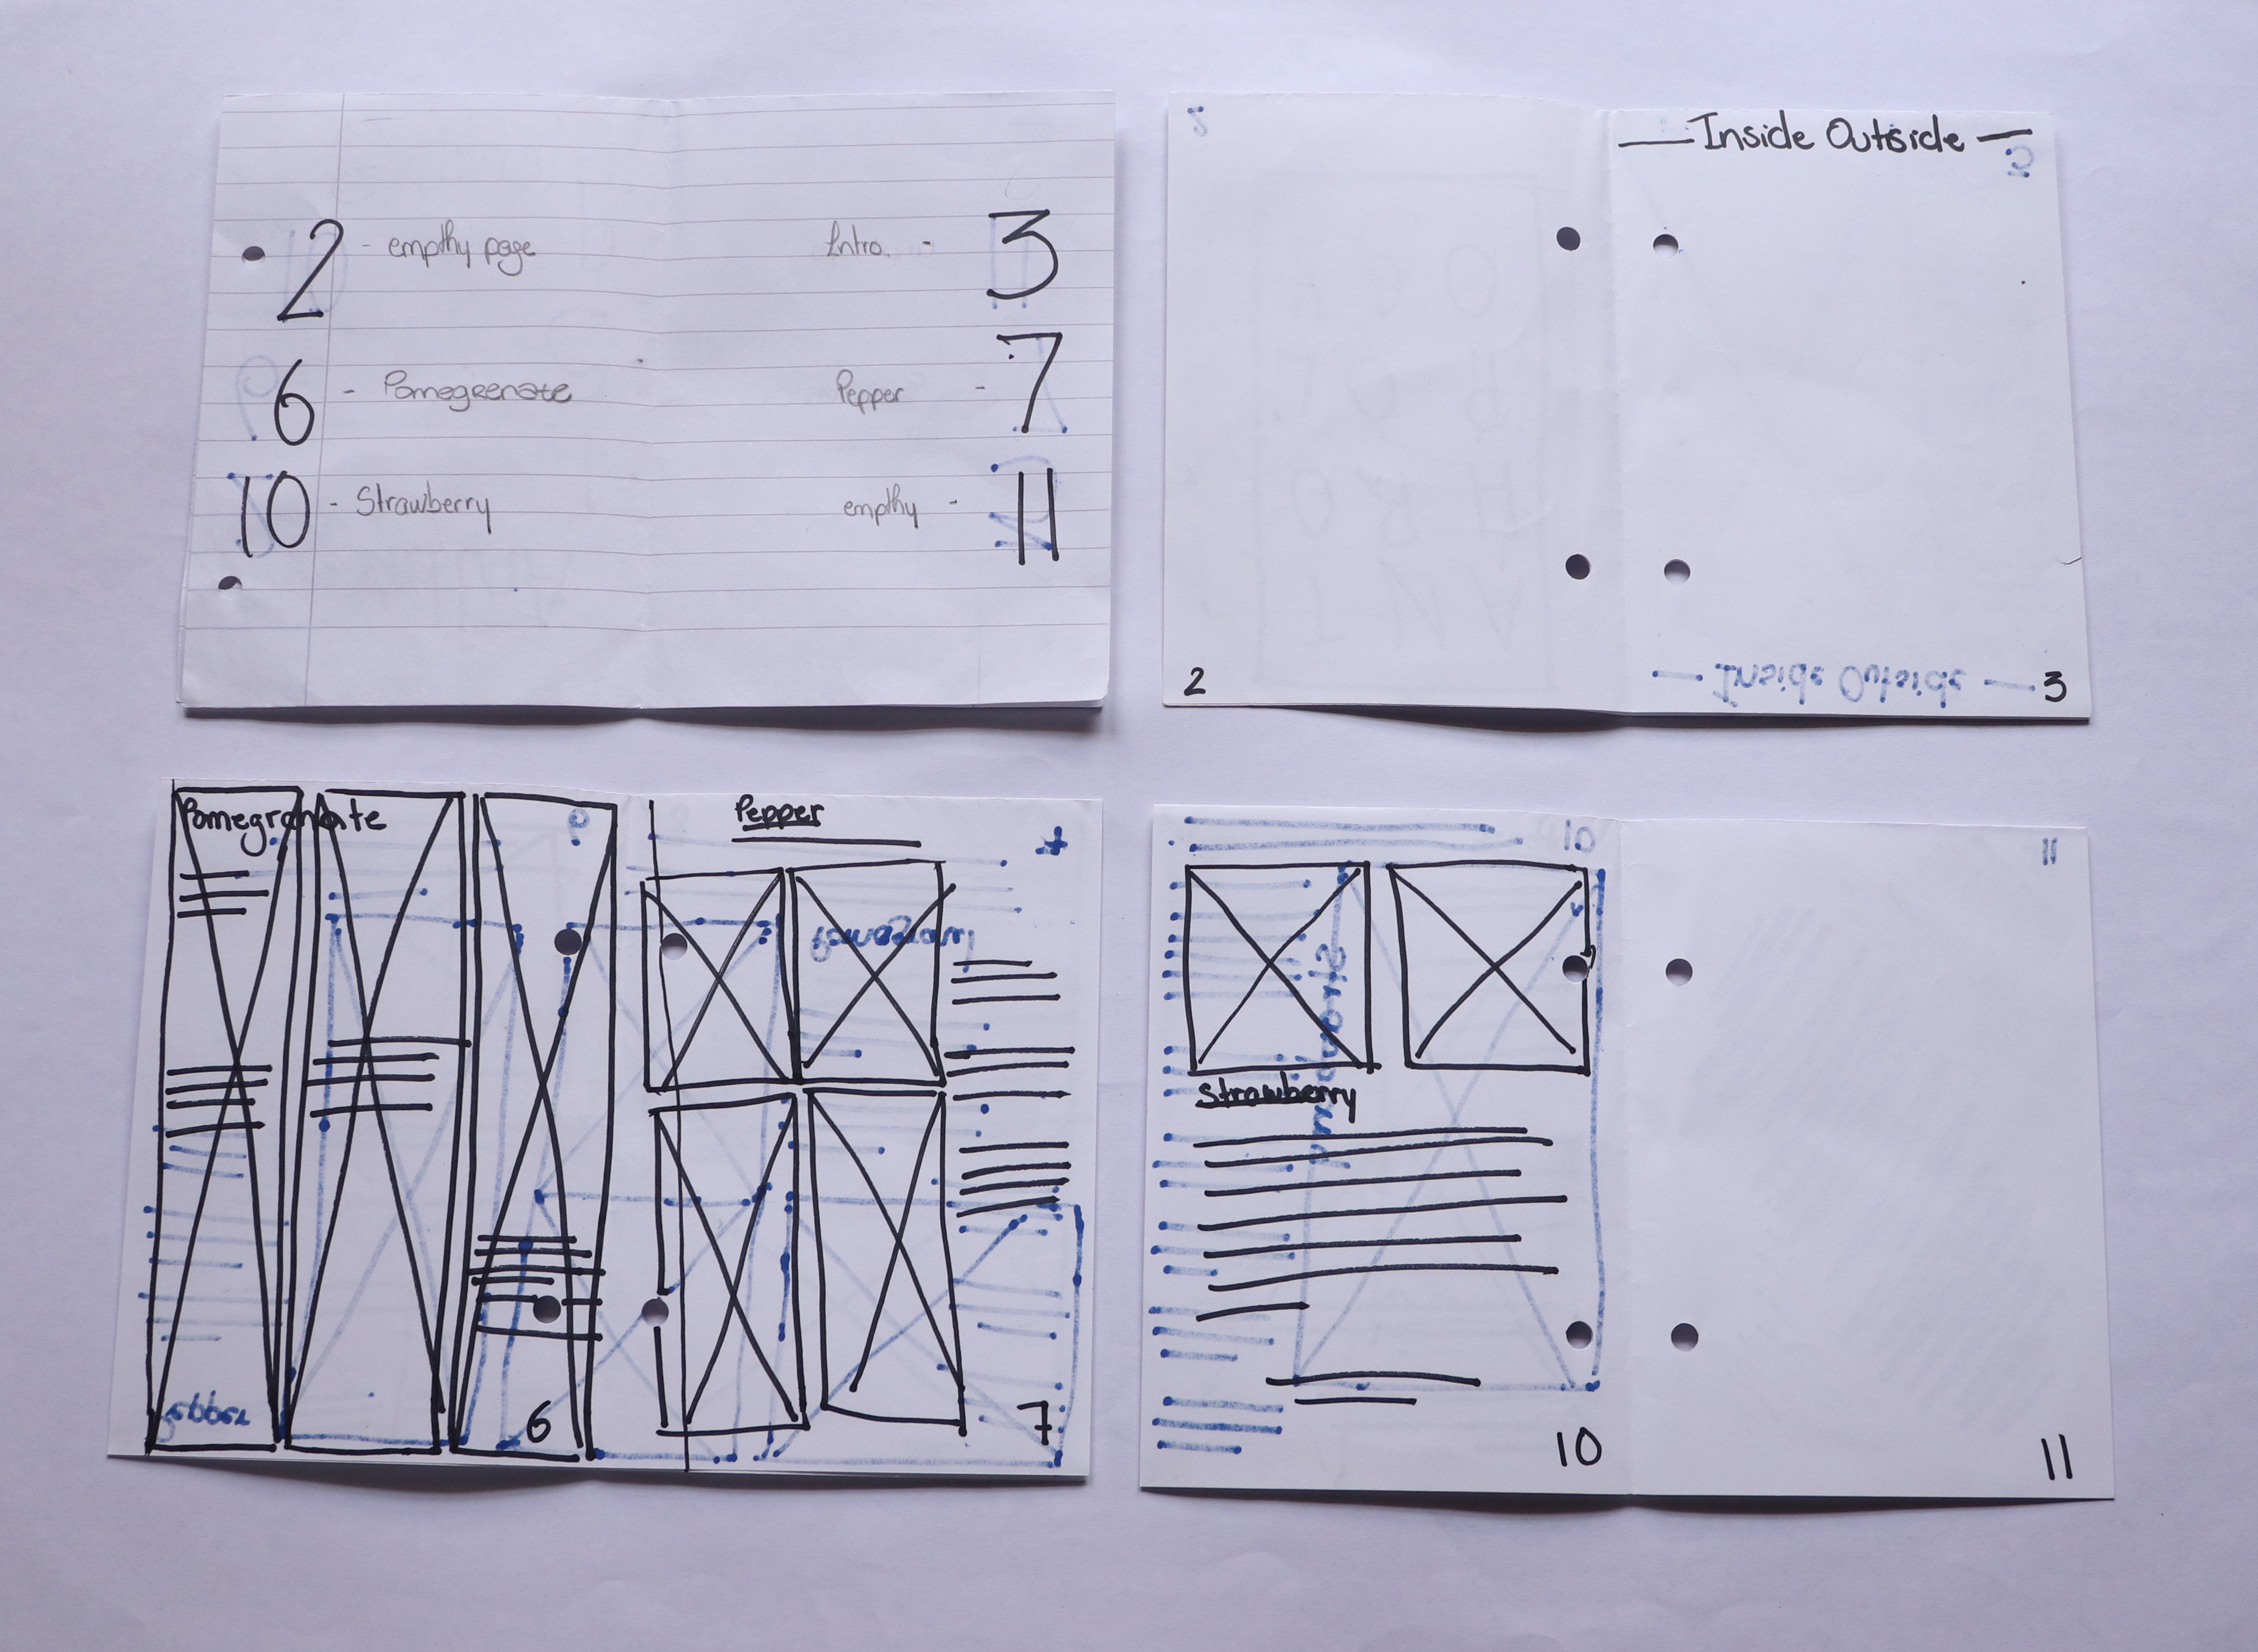 2 - empthy page
Intro. - 3
6 - Pomegrenate
Pepper - 7
10 - Strawberry
empthy - 11
— Inside Outside —
— Inside Outside —
2
3
Pomegranate
Pepper
6
7
10
11
Strawberry
10
11